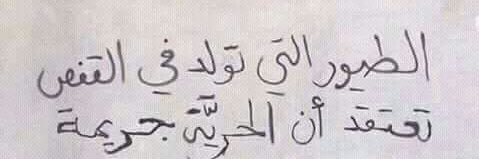 الطيور التي تولد في القفص
تعتقد أن الحريَّة جريمة